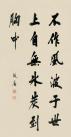 不作風波于世
上自無冰炭到
胸中